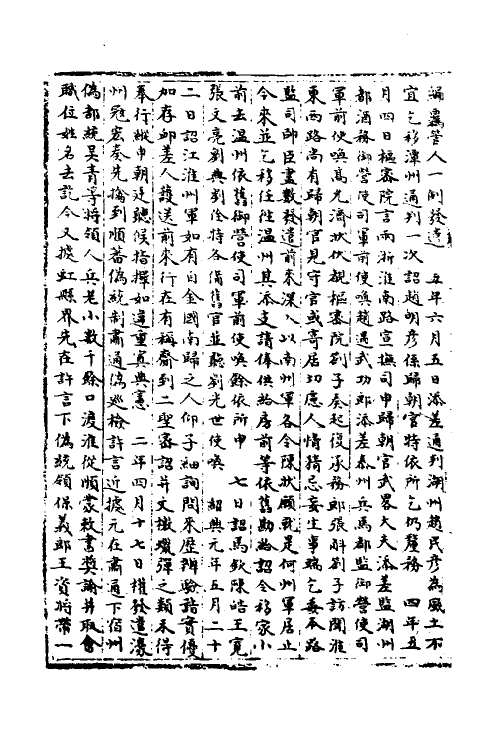 編置管人一例發遣　五年六月五日添差通判湖州趙民彦為風土不
宜乞移漳州通判一次詔趙明彦係歸朝官特依所乞仍釐務　四年五
月四日樞密院言兩浙淮南路宣撫司申歸朝官武畧大夫添差監湖州
都酒務御營使司軍前使喚趙遇武功郎添差泰州兵馬都監御營使司
軍前使喚高允濟狀伏覩樞密院劄子奏起復承務郎張斛劄子訪聞淮
東西路尚有歸朝官見守官或寄居切慮人情猜忌妄生事端乞委本路
監司帥臣盡數發遣前來深入以南州軍各令陳狀願就是何州軍居止
今來並乞移任陞温州其添支請俸供給房前等依舊勘給詔令移家小
前去温州依舊御營使司軍前使喚餘依所申　七日詔馬欽陳皓王寬
張文亮劉興劉淦特各循舊官並聽劉光世使喚　紹興元年五月二十
二日詔江淮州軍如有自金國南歸之人仰子細詢問來歷辨驗諸實優
加存卹差人護送前來行在有稱齎到二聖密詔并文檄蠟彈之類未得
奉行縱申朝廷聽候指揮如違重寘典憲　二年四月十七日權發遣濠
州寇宏奏先掄到順蕃偽統制肅通偽巡檢許言近據元在肅通下宿州
偽都統吴青等將領人兵老小數千餘口渡淮從順蒙敕書奬諭并取會
職位姓名去訖今又據虹縣界先在許言下偽統領保義郎王資將帶一